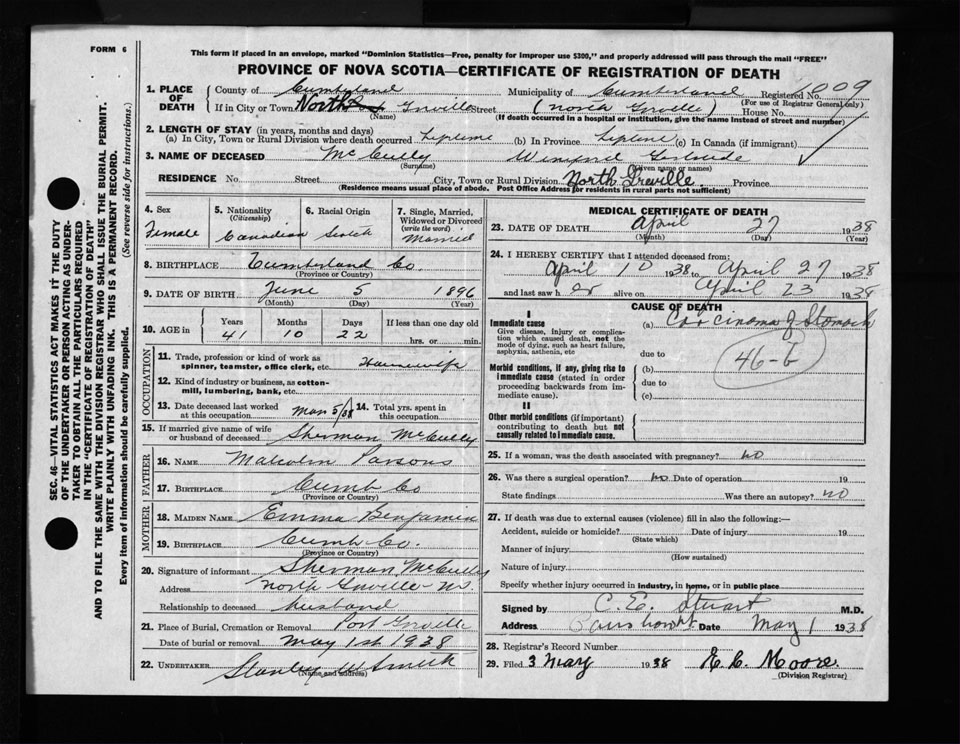 FORM 6
This form if placed in an envelope, marked "Dominion Statistics—Free, penalty for improper use $300," and properly addressed will pass through the mail "FREE"
PROVINCE OF NOVA SCOTIA—CERTIFICATE OF REGISTRATION OF DEATH
1. PLACE OF DEATH
County of Cumberland Municipality of Cumberland Registered No. 009
(For use of Registrar General only)
If in City or Town North Greville Street (North Greville) House No.
(Name) (If death occurred in a hospital or institution, give the name instead of street and number)
2. LENGTH OF STAY (in years, months and days)
(a) In City, Town or Rural Division where death occurred Lifetime (b) In Province Lifetime (c) In Canada (if immigrant)
3. NAME OF DECEASED McCully Winifred Gertrude
(Surname) (Given name or names)
RESIDENCE No. Street City, Town or Rural Division North Greville. Province
(Residence means usual place of abode. Post Office Address for residents in rural parts not sufficient)
4. Sex
Female
5. Nationality
(Citizenship)
Canadian
6. Racial Origin
Scotch
7. Single, Married, Widowed or Divorced
(write the word)
Married
8. BIRTHPLACE Cumberland Co.
(Province or Country)
9. DATE OF BIRTH June 5 1896
(Month) (Day) (Year)
10. AGE in
Years Months Days If less than one day old
41 10 22 hrs. or min.
OCCUPATION
11. Trade, profession or kind of work as spinner, teamster, office clerk, etc. Housewife
12. Kind of industry or business, as cotton-mill, lumbering, bank, etc.
13. Date deceased last worked at this occupation Mar 5/38 14. Total yrs. spent in this occupation
15. If married give name of wife or husband of deceased Sherman McCully
FATHER
16. NAME Malcolm Parsons
17. BIRTHPLACE Cumb Co
(Province or Country)
MOTHER
18. MAIDEN NAME Emma Benjamin
19. BIRTHPLACE Cumb Co.
(Province or Country)
20. Signature of informant Sherman McCulley
Address North Greville NS.
Relationship to deceased husband
21. Place of Burial, Cremation or Removal Port Greville
Date of burial or removal May 1st 1938
22. UNDERTAKER Stanley W Smith
(Name and address)
MEDICAL CERTIFICATE OF DEATH
23. DATE OF DEATH April 27 1938
(Month) (Day) (Year)
24. I HEREBY CERTIFY that I attended deceased from:
April 10 1938 to April 27 1938
and last saw her alive on April 23 1938
CAUSE OF DEATH
I
Immediate cause
Give disease, injury or complication which caused death, not the mode of dying, such as heart failure, asphyxia, asthenia, etc
(a) Carcinoma of Stomach
46-6
due to
Morbid conditions, if any, giving rise to immediate cause (stated in order proceeding backwards from immediate cause).
(b)
due to
(c)
II
Other morbid conditions (if important) contributing to death but not causally related to immediate cause.
25. If a woman, was the death associated with pregnancy? no
26. Was there a surgical operation? no Date of operation 19
State findings Was there an autopsy? no
27. If death was due to external causes (violence) fill in also the following:—
Accident, suicide or homicide? Date of injury 19
(State which)
Manner of injury
(How sustained)
Nature of injury
Specify whether injury occurred in industry, in home, or in public place
Signed by C. E. Stuart M.D.
Address Parrsboro Date May 1 1938
28. Registrar's Record Number
29. Filed 3 May 1938 E. C. Moore.
(Division Registrar)
SEC. 46—VITAL STATISTICS ACT MAKES IT THE DUTY
OF THE UNDERTAKER OR PERSON ACTING AS UNDER-
TAKER TO OBTAIN ALL THE PARTICULARS REQUIRED
IN THE "CERTIFICATE OF REGISTRATION OF DEATH"
AND TO FILE THE SAME WITH THE DIVISION REGISTRAR WHO SHALL ISSUE THE BURIAL PERMIT.
WRITE PLAINLY WITH UNFADING INK. THIS IS A PERMANENT RECORD.
Every item of information should be carefully supplied. (See reverse side for instructions.)